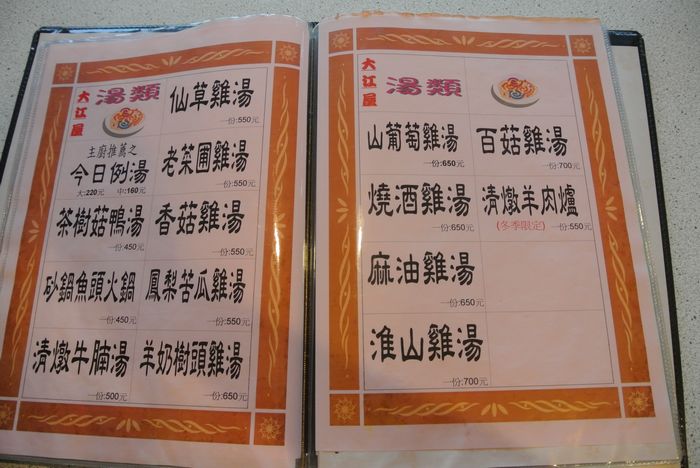 大江屋
湯類
仙草雞湯
一份:550元
主廚推薦之
今日例湯
大:220元 中:160元
老菜圃雞湯
一份:550元
茶樹菇鴨湯
一份:450元
香菇雞湯
一份:550元
砂鍋魚頭火鍋
一份:450元
鳳梨苦瓜雞湯
一份:550元
清燉牛腩湯
一份:500元
羊奶樹頭雞湯
一份:650元
大江屋
湯類
山葡萄雞湯
一份:650元
百菇雞湯
一份:700元
燒酒雞湯
一份:650元
清燉羊肉爐
(冬季限定) 一份:550元
麻油雞湯
一份:650元
淮山雞湯
一份:700元